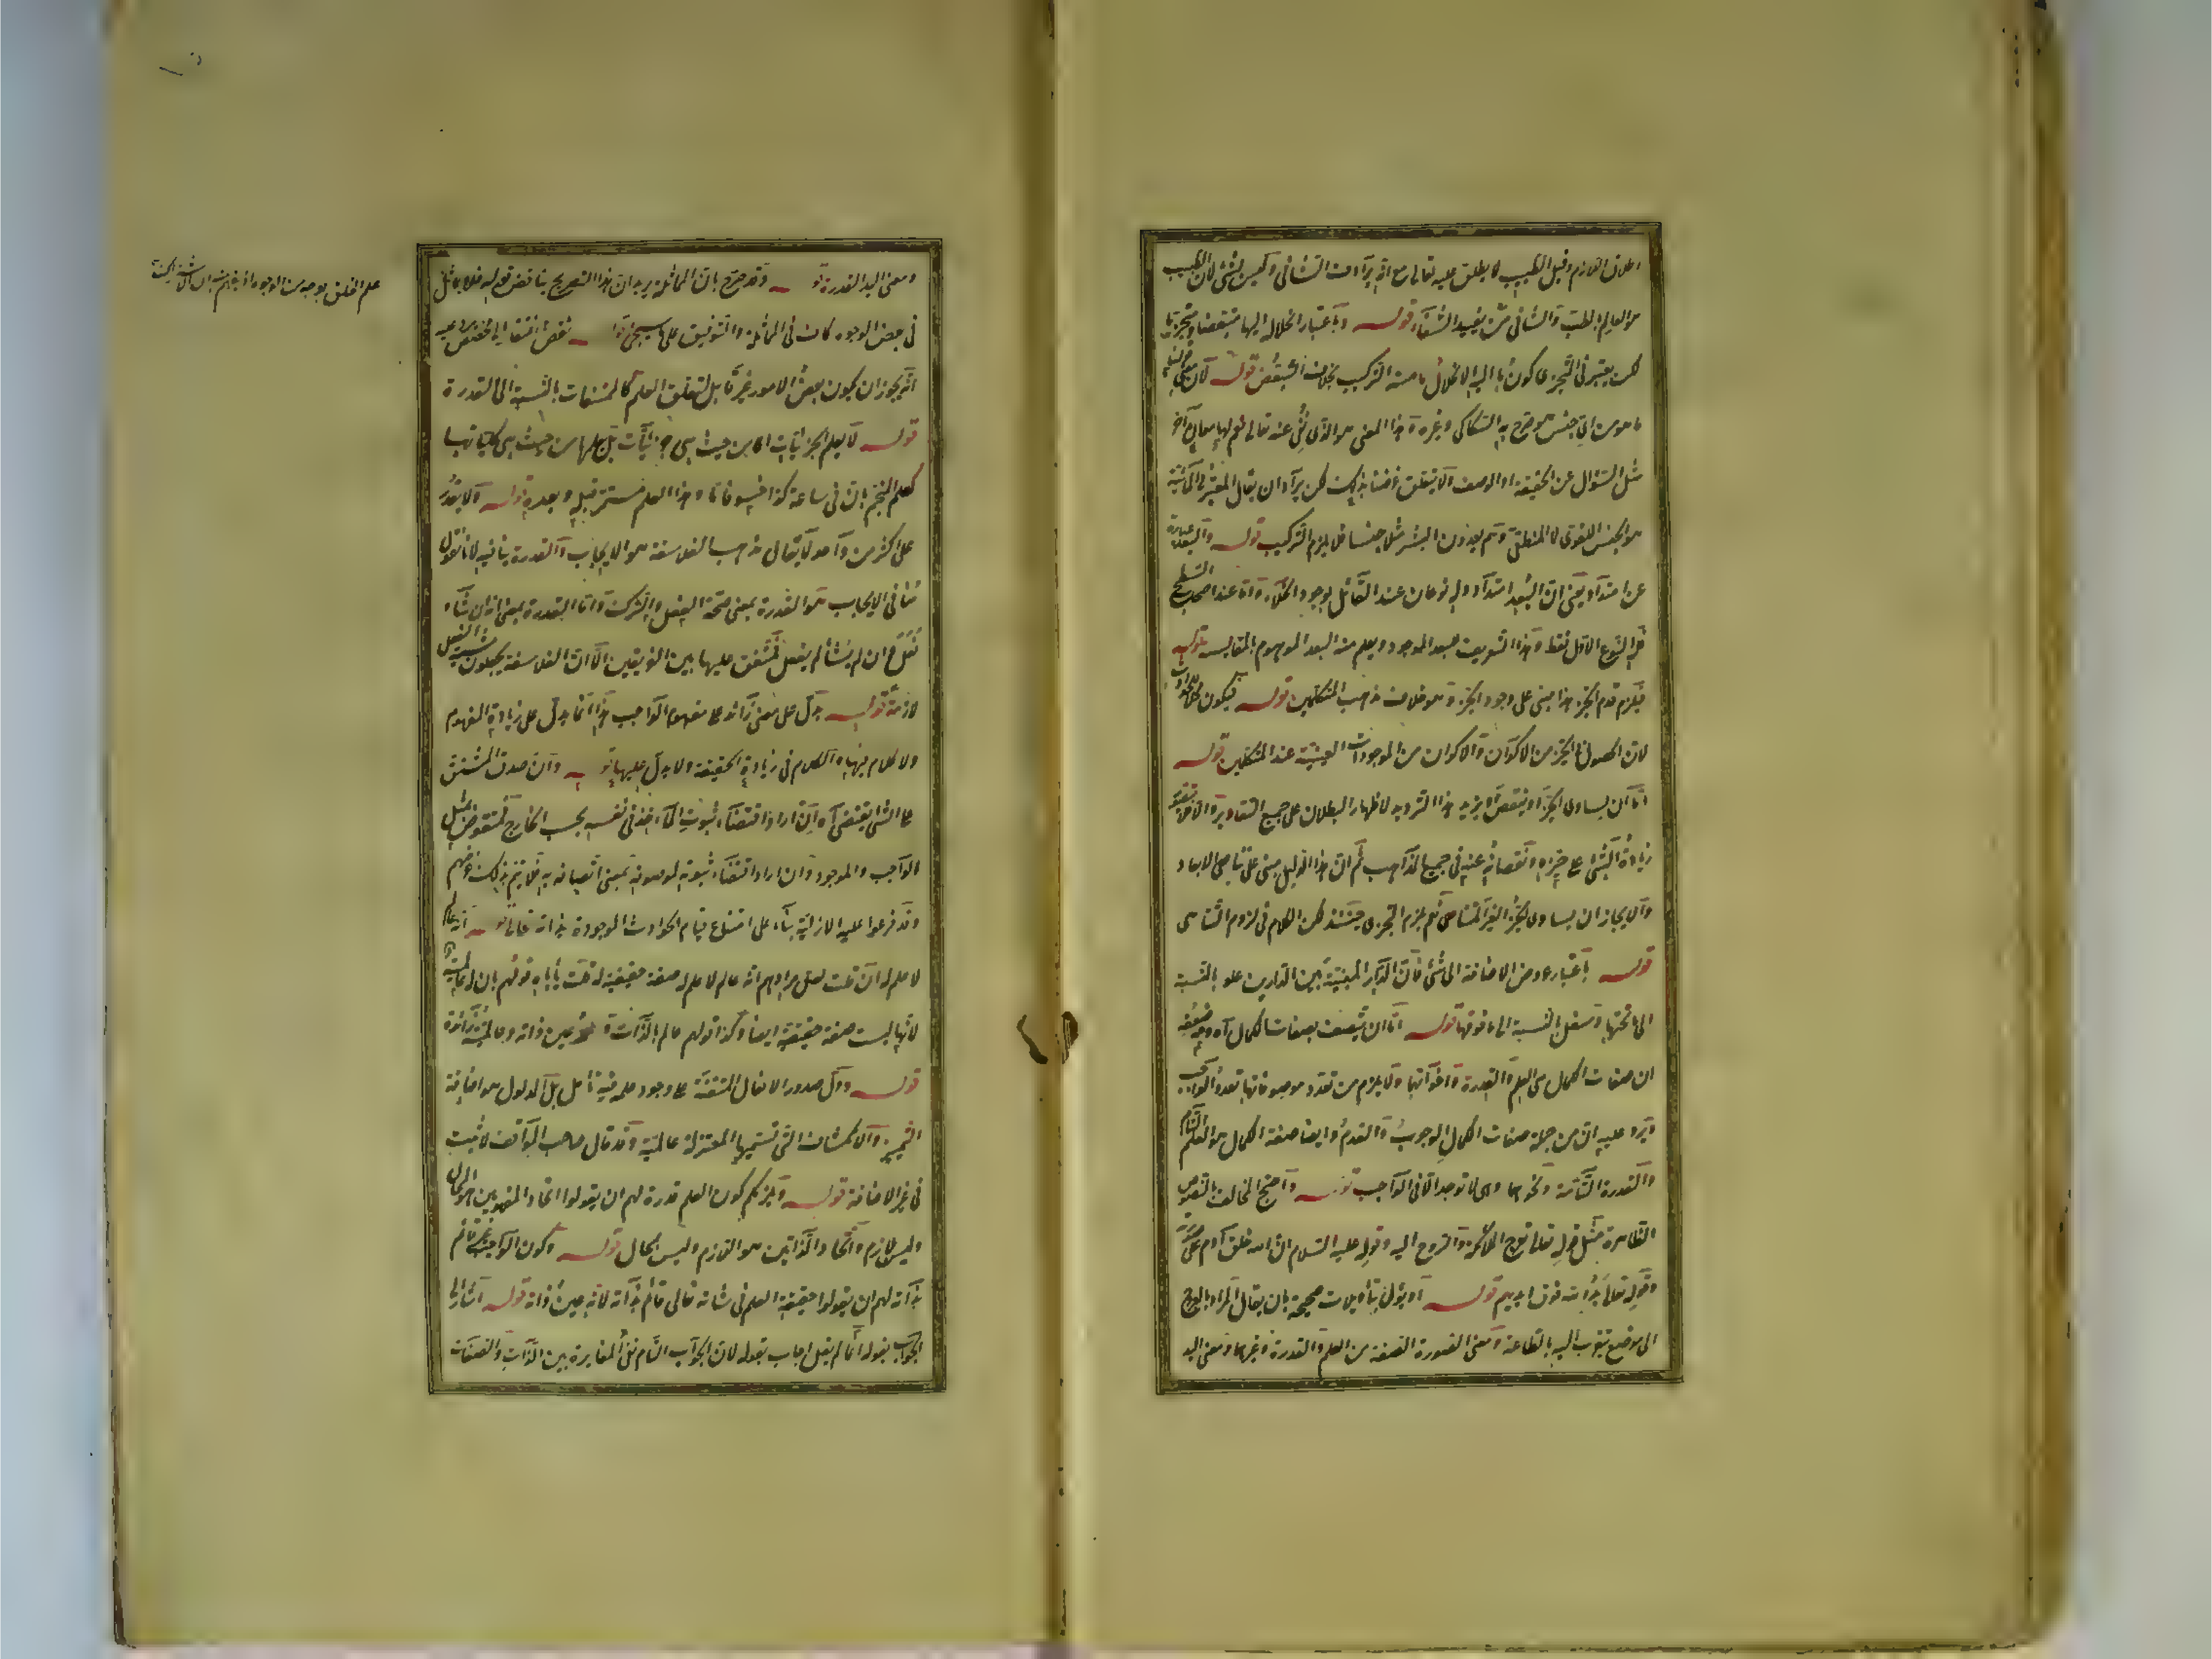 اطلاق اللازم وقيل الطبيب لا يطلق عليه تعالى مع انه يرادف الشافي وليس بشئ لان الطبيب
هو العالم بالطب والشافي من يفيد الشفاء قوله وباعتبار انحلاله اليها متبعضا ومتجزيا
لكن يعتبر في التجزي كون ما اليه الانحلال ما منه التركيب بخلاف التبعض قوله لان معنى قولنا
ما هو من اي جنس هو صرح به السكاكي وغيره وهذا المعنى هو الذي نفي عنه تعالى نعم لها معان آخر
مثل السؤال عن الحقيقة او الوصف ولا يتعلق غرضنا بذلك لكن يرد ان يقال المعتبر في المائية
هو الجنس اللغوي لا المنطقي وهم يعدون البشر مثلا جنسا فلا يلزم التركيب قوله والبعد عبارة
عن امتداد يعني ان البعد امتداد وله نوعان عند القائل بوجود الخلاء واما عند اصحاب السطح
فله النوع الاول فقط وهذا التعريف للبعد الموجود ويعلم منه البعد الموهوم بالمقايسة قوله
فيلزم قدم الحيز هذا مبني على وجود الحيز وهو خلاف مذهب المتكلمين قوله فيكون محلا للحوادث
لان الحصول في الحيز من الاكوان والاكوان من الموجودات العينية عند المتكلمين قوله
اما ان يساوي الحيز او ينقص او يزيد هذا الترديد لاظهار البطلان على جميع التقادير والا فلا يتصور
زيادة الشئ على حيزه ونقصانه عنه في جميع المذاهب ثم ان هذا الدليل مبني على تناهي الابعاد
والا لجاز ان يساوي الحيز الغير المتناهي نعم يلزم التجزي حينئذ لكن الكلام في لزوم التناهي
قوله باعتبار عروض الاضافة الى شئ فان الدار المبنية بين الدارين علو بالنسبة
الى ما تحتها وسفل بالنسبة الى ما فوقها قوله اما ان يتصف بصفات الكمال آه وجه ضعفه
ان صفات الكمال هي العلم والقدرة واخواتها ولا يلزم من تعدد موصوفاتها تعدد الواجب
ويرد عليه ان من جملة صفات الكمال الوجوب والقدم وايضا صفة الكمال هو العلم التام
والقدرة التامة ونحوها وهي لا توجد الا في الواجب قوله واحتج المخالف بالنصوص
الظاهرة مثل قوله تعالى تعرج الملائكة والروح اليه وقوله عليه السلام ان الله خلق آدم على صورته
وقوله تعالى يد الله فوق ايديهم قوله او يؤول بتأويلات صحيحة بان يقال المراد بالعروج
الى موضع يتقرب اليه بالطاعة ومعنى الصورة الصفة من العلم والقدرة وغيرها ومعنى اليد
ومعنى اليد القدرة قوله وقد صرح بان المماثلة يريد ان هذا التصريح يناقض قوله فلا يماثل
في بعض الوجوه كاف في المماثلة والتوفيق على ما سيجئ قوله نقص وافتقار الى مخصص يرد عليه
انه يجوز ان يكون بعض الامور غير قابل لتعلق العلم كالممتنعات بالنسبة الى القدرة
قوله لا يعلم الجزئيات اي من حيث هي جزئيات بل يعلمها من حيث هي كلياتها
كعلم المنجم بان في ساعة كذا خسوفا ما وهذا العلم مستمر قبله وبعده قوله ولا يقدر
على اكثر من واحد لا يقال مذهب الفلاسفة هو الايجاب والقدرة ينافيه لانا نقول
منافي الايجاب هو القدرة بمعنى صحة الفعل والترك واما القدرة بمعنى انه ان شاء
فعل وان لم يشأ لم يفعل فمتفق عليها بين الفريقين الا ان الفلاسفة يجعلون مشية الفعل
لازمة قوله يدل على معنى زائد على مفهوم الواجب هذا انما يدل على زيادة المفهوم
ولا كلام فيها والكلام في زيادة الحقيقة ولا يدل عليها قوله وان صدق المشتق
على الشئ يقتضي آه ان اراد اقتضاء ثبوت المأخذ في نفسه بحسب الخارج فمنقوض بمثل
الواجب والموجود وان اراد اقتضاء ثبوته لموصوفه بمعنى اتصافه به فلا يتم بذلك غرضهم
وقد فرعوا عليه الازلية بناء على امتناع قيام الحوادث الموجودة بذاته تعالى قوله انه عالم
لا علم له ان قلت لعل مرادهم انه عالم لا علم له صفة حقيقية له قلت يأباه قولهم بان له عالمية
لانها ليست صفة حقيقية ايضا وكذا قولهم عالم بالذات وعلمه عين ذاته وعالميته زائدة
قوله ودل صدور الافعال المتقنة على وجود علمه فيه تأمل بل المدلول هو اضافة
التمييز والانكشاف التي تسميها المعتزلة عالمية وقد قال صاحب المواقف لا ثبت
في غير الاضافة قوله ويلزمكم كون العلم قدرة لهم ان يقولوا اتحاد المفهومين هو المحال
وليس بلازم واتحاد الذاتين هو اللازم وليس بمحال قوله وكون الواجب غير قائم
بذاته لهم ان يقولوا حقيقة العلم في شانه تعالى قائم بذاته لانه عين ذاته قوله اشار الى
الجواب بقوله انما لم يقل اجاب بقوله لان الجواب التام نفي المغايرة بين الذات والصفات
علم الخلق بوجه من الوجوه اذ يفهم منه ان